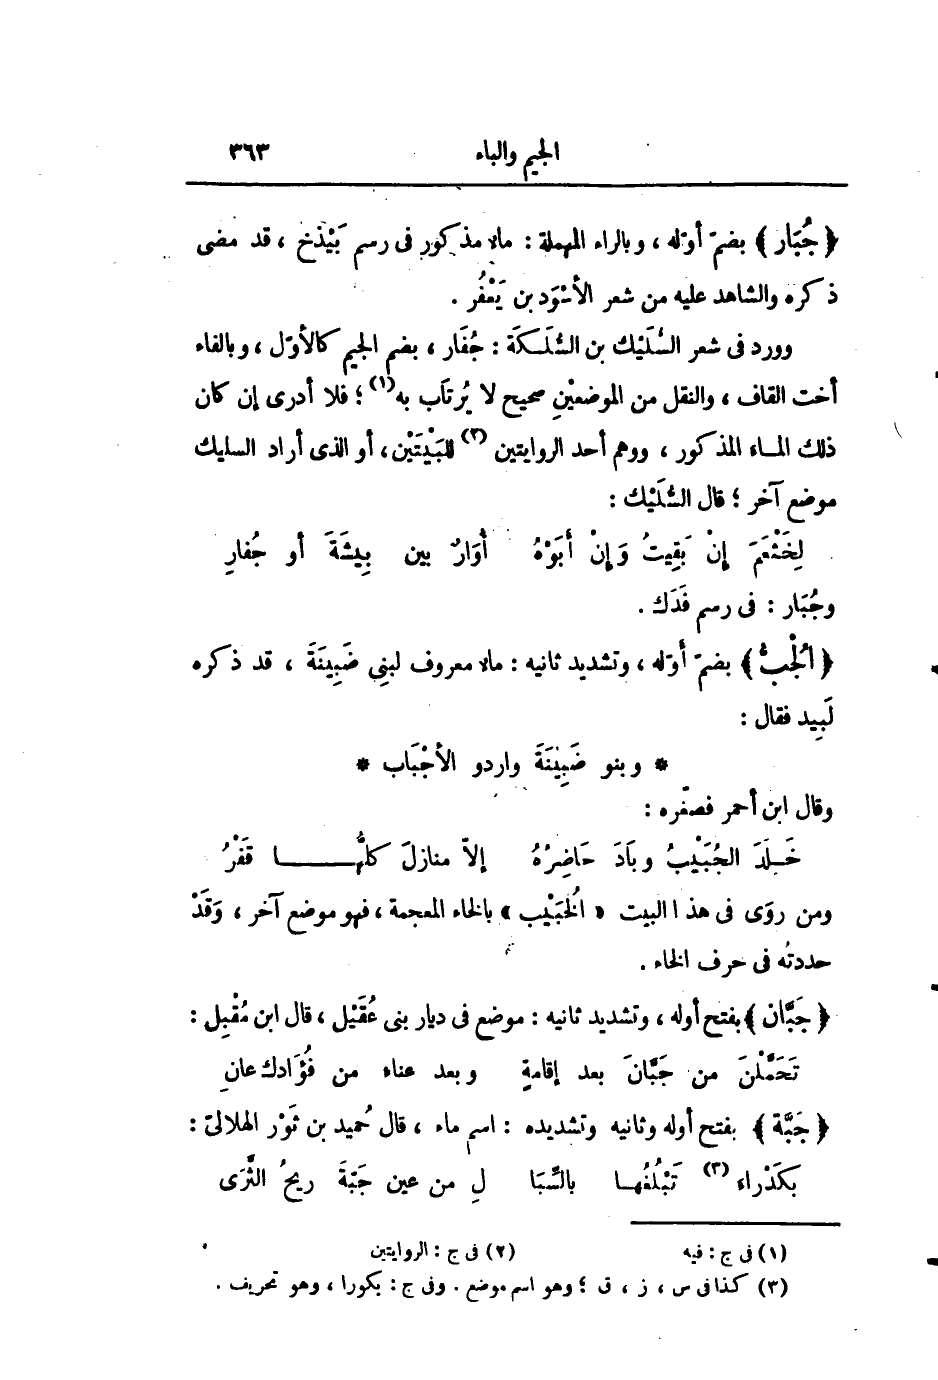 الجيم والباء ٣٦٣
﴿ جُبَار ﴾ بضمّ أوّله ، وبالراء المهملة : ماء مذكور فى رسم بَيْذخ ، قد مضى
ذكره والشاهد عليه من شعر الأسْوَد بن يَعْفُر .
وورد فى شعر السُّلَيْك بن السُّلَكَة : جُفَار ، بضم الجيم كالأوّل ، وبالفاء
أخت القاف ، والنقل من الموضعَيْنِ صحيح لا يُرتَاب به(١) ؛ فلا أدرى إن كان
ذلك المـاء المذكور ، ووهم أحد الروايتين (٢) للبَيْتَيْن، أو الذى أراد السليك
موضع آخر ؛ قال السُّلَيْك :
لِخَثْعَمَ إِنْ بَقِيتُ وَإِنْ أَبَوْهُ أُوَارٌ بين بِيشَةَ أو جُفارِ
وجُبَار : فى رسم فَدَك .
﴿ الْجُبُّ ﴾ بضمّ أوّله ، وتشديد ثانيه : ماء معروف لبنِي ضَبِينَةَ ، قد ذكره
لَبِيد فقال :
* وبنو ضَبِينَةَ واردو الأجْبَاب *
وقال ابن أحمر فصغّره :
خَـلَدَ الجُبَيْبُ وبَادَ حَاضِرُهُ إلاّ منازلَ كلُّهـــا قَفْرُ
ومن روَى فى هذا البيت « الُخبَيْب » بالخاء المعجمة ، فهو موضع آخر ، وَقَدْ
حددتُه فى حرف الخاء .
﴿ جَبَّان ﴾ بفتح أوله ، وتشديد ثانيه : موضع فى ديار بنى عُقَيْل ، قال ابن مُقْبِل :
تَحَمَّلْنَ من جَبَّانَ بعد إقامةٍ وبعد عناء من فُؤَادك عانِ
﴿ جَبَّة ﴾ بفتح أوله وثانيه وتشديده : اسم ماء ، قال حُميد بن ثَوْر الهلالىّ :
بكَدْراء (٣) تَبْلُغُهـا بالسِّبَا لِ من عين جَبّةَ ريحُ الثَّرَى
(١) فى ج : فيه (٢) فى ج : الروايتين
(٣) كذا فى س ، ز ، ق ؛ وهو اسم موضع . وفى ج : بكورا ، وهو تحريف .